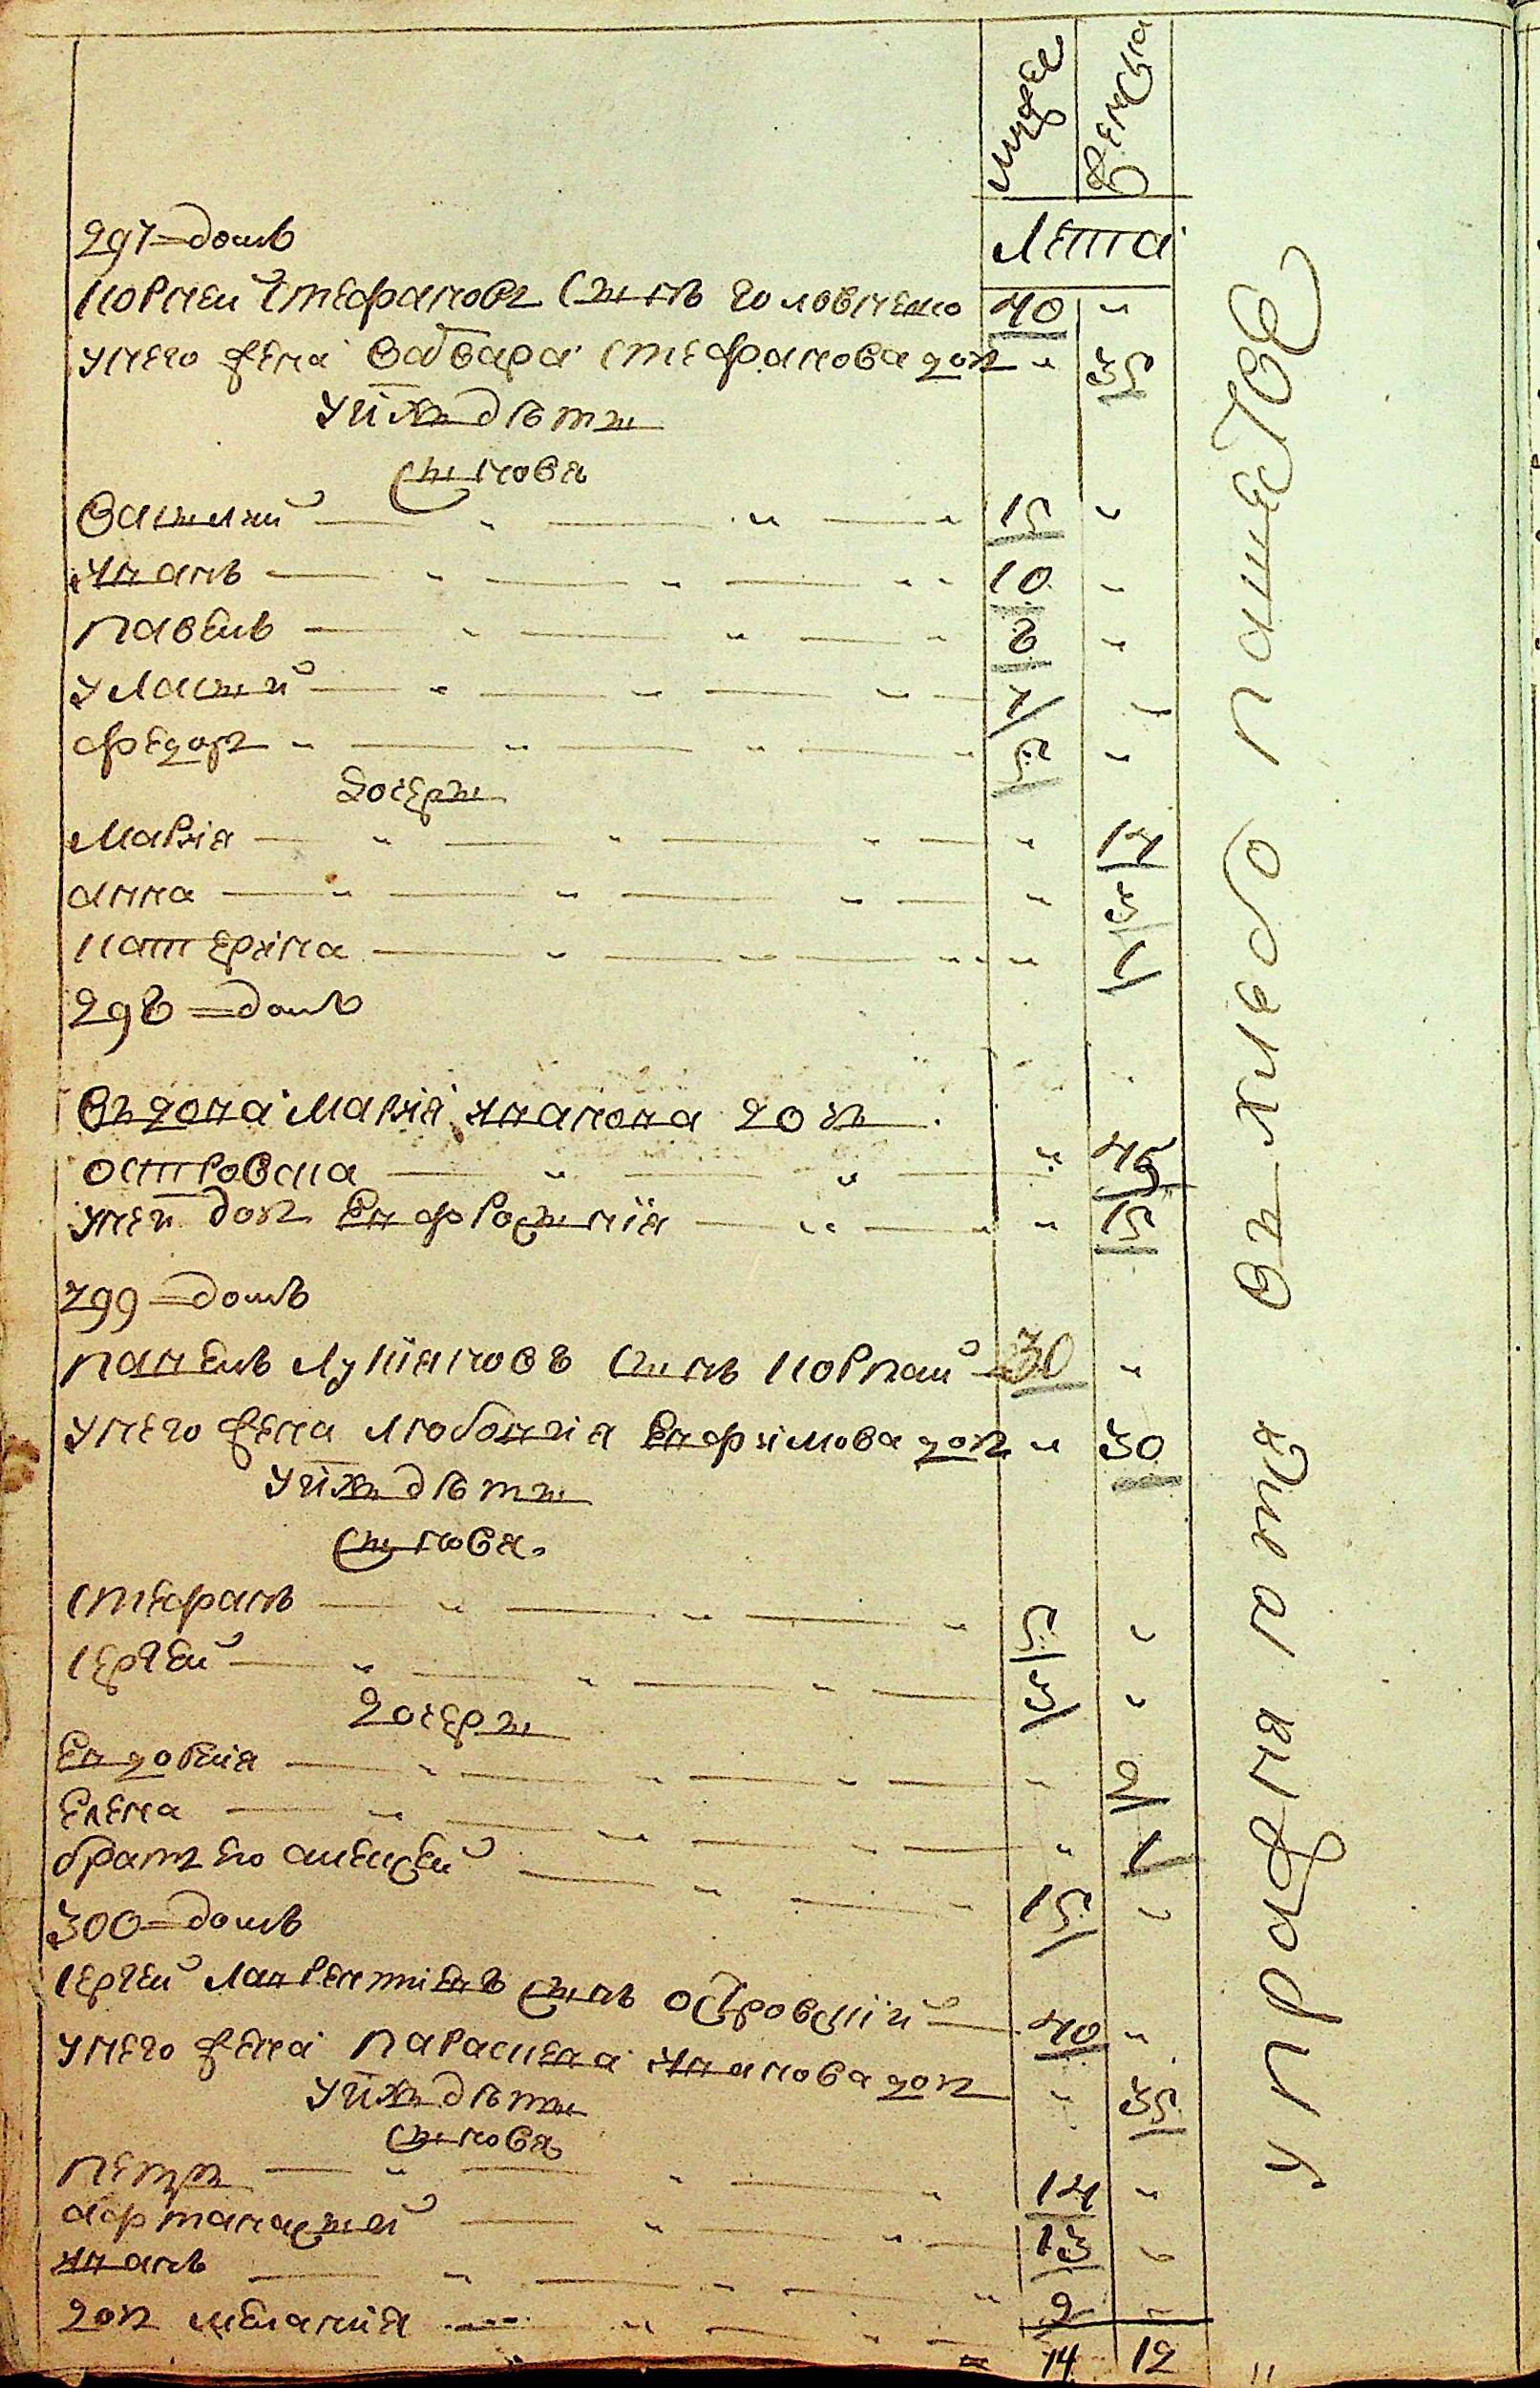 мужес женска
лета
297 = домъ
Корней Стефановъ сынъ Головченко 40 "
у него жена Варвара Стефанова доч " 35
у их дѣти
сынова
Василий " " " 15 "
Иванъ " " " 10 "
Павелъ " " " 8 "
Уласий " " " 7
Федор " " " " 5 "
дочери
Мария " " " " 14
анна " " " " 3
Катерина " " " " 1
298 = домъ
вдова Мария иванова доч
островска " " " 45
у ней доч Евфросиния " " 15
299 = домъ
Павелъ Лукіяновъ сынъ Корпай 30 "
у него жена Любовия Евфимова доч " 30
у их дѣти
сынова
Стефанъ " " " 5 "
Сергей " " " 3 "
дочери
Евдокия " " " " 2
Елена " " " 1
брат его алексей " " 15 "
300 = домъ
Сергей Лаврентиевъ сынъ Островский 40 "
у него жена Параскева иванова доч " 35
у их дѣти
сынова
Петръ " " " 14 "
афтанасией " " 13 "
иванъ " " " 2 "
доч мелания " "
14 12 "
упражняются въ хлебопашестве